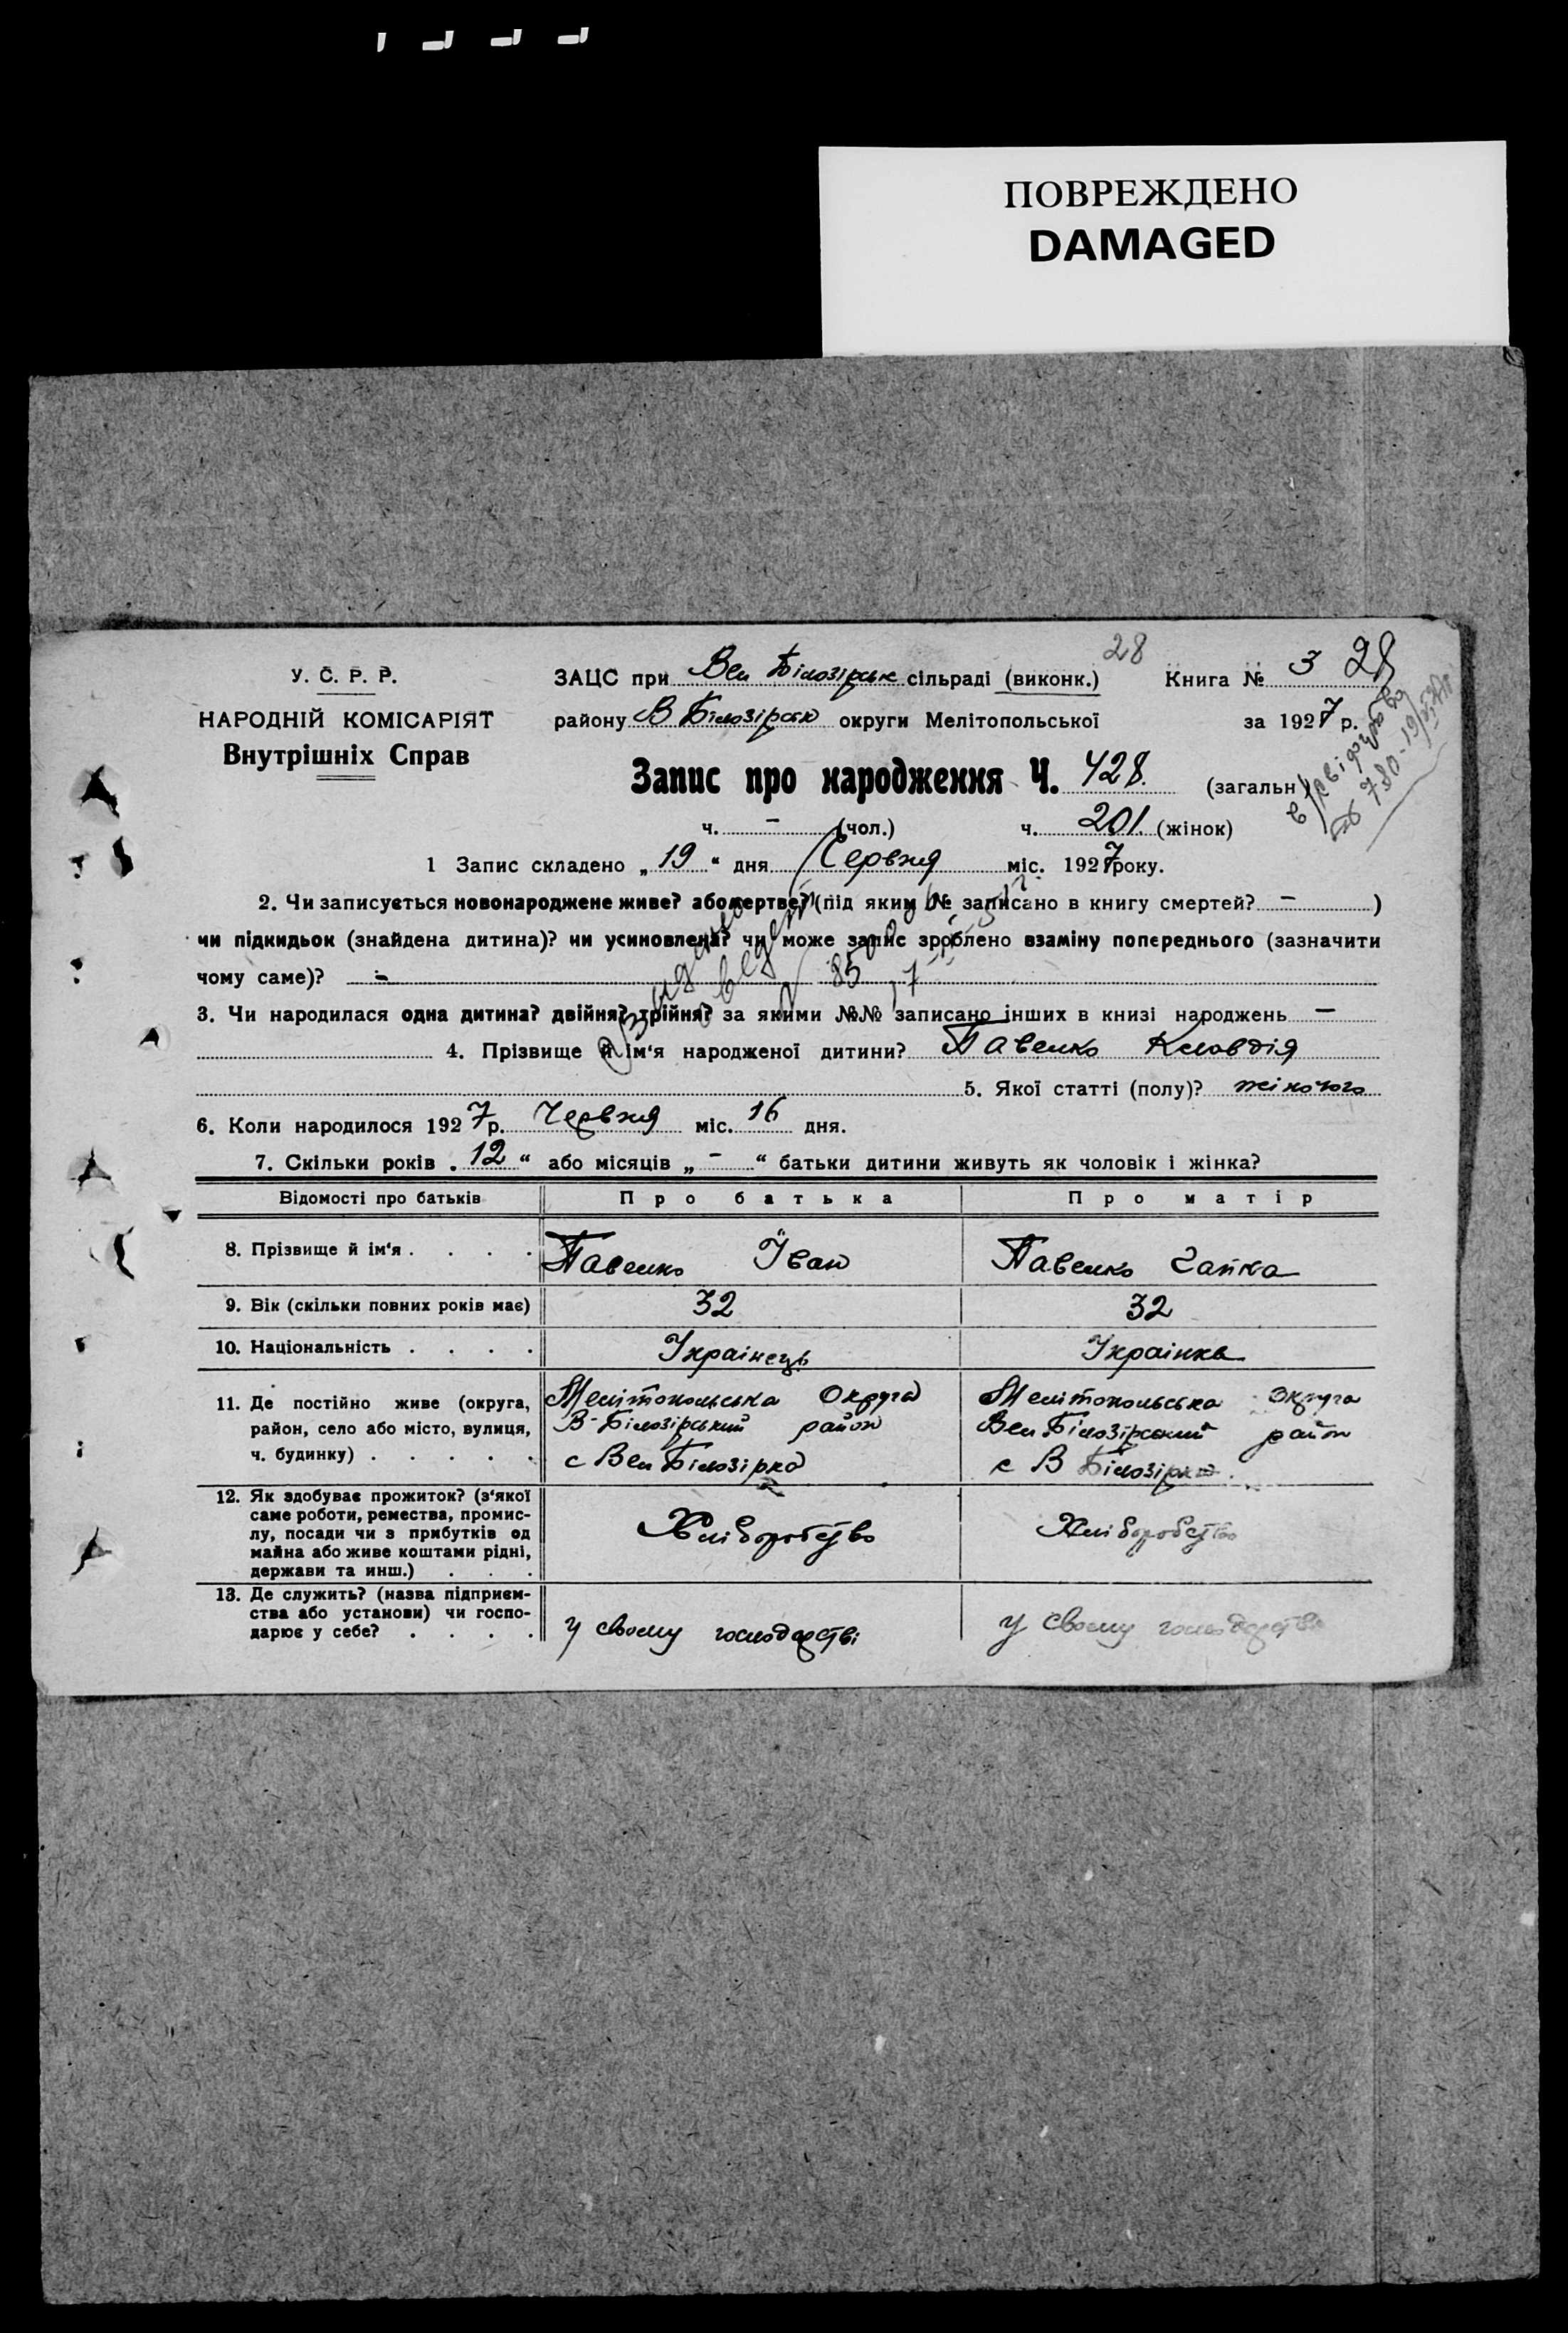 ПОВРЕЖДЕНО
DAMAGED
28
У. С. Р. Р.
НАРОДНІЙ КОМІСАРІЯТ
Внутрішніх Справ
ЗАЦС при Вел Білозірськ сільраді (виконк.) Книга № 3 28
району В Білозірськ округи Мелітопольської за 1927 р.
Запис про народження Ч. 428. (загальн)
ч. - (чол.) ч. 201. (жінок)
780-19
1 Запис складено „19“ дня Червня міс. 1927 року.
2. Чи записується новонароджене живе? або мертве? (під яким № записано в книгу смертей? - )
чи підкидьок (знайдена дитина)? чи усиновлена? чи може запис зроблено взаміну попереднього (зазначити
чому саме)? -
85
3. Чи народилася одна дитина? двійня? трійня? за якими №№ записано інших в книзі народжень -
4. Прізвище й ім'я народженої дитини? Павенко Клавдія
5. Якої статті (полу)? жіночого
6. Коли народилося 1927 р. Червня міс. 16 дня.
7. Скільки років „12“ або місяців „-“ батьки дитини живуть як чоловік і жінка?
Відомості про батьків Про батька Про матір
8. Прізвище й ім'я . . . . Павенко Іван Павенко Гапка
9. Вік (скільки повних років має) 32 32
10. Національність . . . . Українець Українка
11. Де постійно живе (округа, Мелітопольська Округа Мелітопольська округа
район, село або місто, вулиця, В-Білозірський район Вел Білозірський район
ч. будинку) . . . . . с Вел Білозірка с В Білозірка
12. Як здобуває прожиток? (з'якої
саме роботи, ремества, промис-
лу, посади чи з прибутків од Хліборобство Хліборобство
майна або живе коштами рідні,
держави та инш.) . . .
13. Де служить? (назва підприєм-
ства або установи) чи госпо-
дарює у себе? . . . . у свому господарстві у свому господарстві